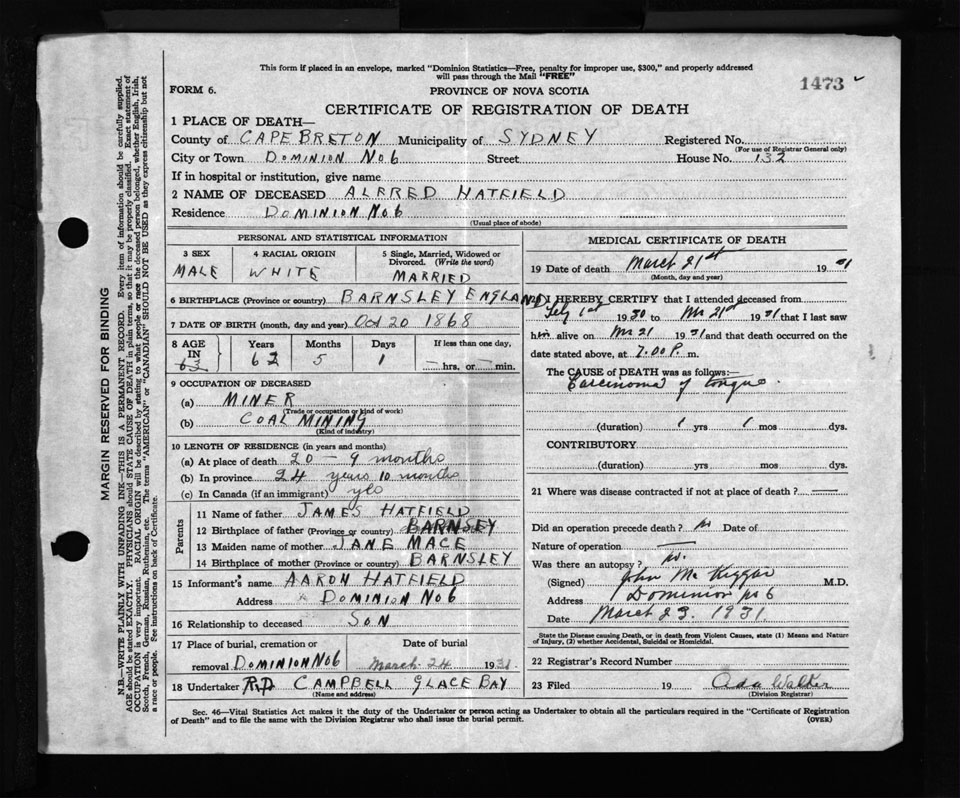 This form if placed in an envelope, marked "Dominion Statistics—Free, penalty for improper use, $300," and properly addressed
will pass through the Mail "FREE"
1473
FORM 6.
PROVINCE OF NOVA SCOTIA
CERTIFICATE OF REGISTRATION OF DEATH
1 PLACE OF DEATH—
County of CAPE BRETON Municipality of SYDNEY Registered No.
(For use of Registrar General only)
City or Town DOMINION No 6 Street House No. 132
If in hospital or institution, give name
2 NAME OF DECEASED ALFRED HATFIELD
Residence DOMINION No 6
(Usual place of abode)
PERSONAL AND STATISTICAL INFORMATION
3 SEX 4 RACIAL ORIGIN 5 Single, Married, Widowed or
Divorced. (Write the word)
MALE WHITE MARRIED
6 BIRTHPLACE (Province or country) BARNSLEY ENGLAND
7 DATE OF BIRTH (month, day and year) Oct 20 1868
8 AGE Years Months Days If less than one day,
IN 62 5 1 hrs. or min.
63
9 OCCUPATION OF DECEASED
(a) MINER
(Trade or occupation or kind of work)
(b) COAL MINING
(Kind of industry)
10 LENGTH OF RESIDENCE (in years and months)
(a) At place of death 20 - 9 months
(b) In province 24 years 10 months
(c) In Canada (if an immigrant) yes
Parents
11 Name of father JAMES HATFIELD
12 Birthplace of father (Province or country) BARNSEY
13 Maiden name of mother JANE MACE
14 Birthplace of mother (Province or country) BARNSLEY
15 Informant's name AARON HATFIELD
Address DOMINION No 6
16 Relationship to deceased SON
17 Place of burial, cremation or Date of burial
removal DOMINION No 6 March 24 1931
18 Undertaker R.D CAMPBELL GLACE BAY
(Name and address)
MEDICAL CERTIFICATE OF DEATH
19 Date of death March 21st 1931
(Month, day and year)
I HEREBY CERTIFY that I attended deceased from
1st 1930 to Mr 21st 1931 that I last saw
him alive on Mr 21 1931 and that death occurred on the
date stated above, at 7.00 P. m.
The CAUSE of DEATH was as follows:—
Carcinoma of tongue.
(duration) 1 yrs 1 mos dys.
CONTRIBUTORY
(duration) yrs mos dys.
21 Where was disease contracted if not at place of death?
Did an operation precede death? no Date of
Nature of operation
Was there an autopsy? no.
(Signed) John M.D.
Address Dominion No 6
Date March 23. 1931.
State the Disease causing Death, or in death from Violent Causes, state (1) Means and Nature
of Injury, (2) whether Accidental, Suicidal or Homicidal.
22 Registrar's Record Number
23 Filed 19 Ada Walker
(Division Registrar)
Sec. 46—Vital Statistics Act makes it the duty of the Undertaker or person acting as Undertaker to obtain all the particulars required in the "Certificate of Registration
of Death" and to file the same with the Division Registrar who shall issue the burial permit.
(OVER)
MARGIN RESERVED FOR BINDING
N.B.—WRITE PLAINLY WITH UNFADING INK—THIS IS A PERMANENT RECORD. Every item of information should be carefully supplied.
AGE should be stated EXACTLY. PHYSICIANS should STATE CAUSE OF DEATH in plain terms, so that it may be properly classified. Exact statement of
OCCUPATION is very important. RACIAL ORIGIN will be described by stating to what people or race the deceased person belonged, whether English, Irish,
Scotch, French, German, Russian, Ruthenian, etc. The terms "AMERICAN" or "CANADIAN" SHOULD NOT BE USED as they express citizenship but not
a race or people. See instructions on back of Certificate.